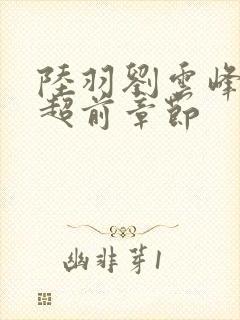 陸羽劉雲峰
超前章節
幽非芽1